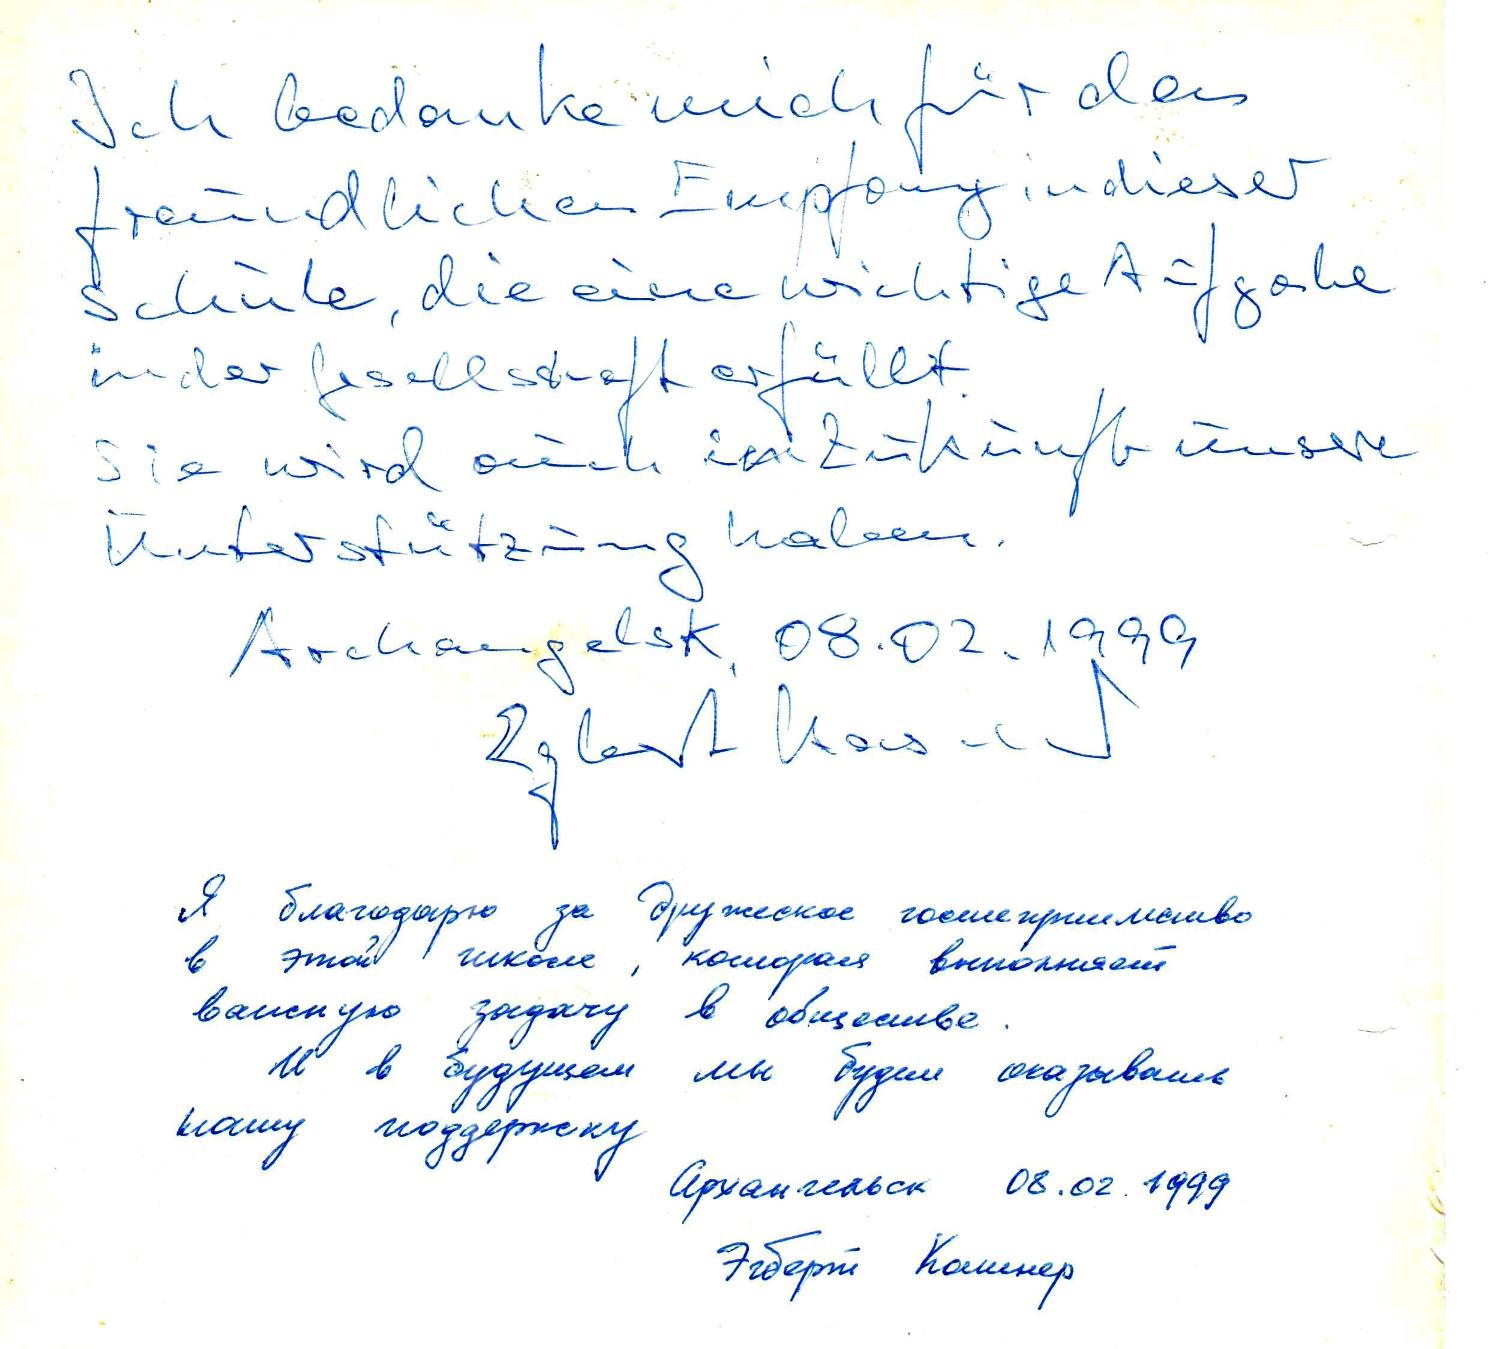 Ich bedanke mich für den
freundlichen Empfang in dieser
Schule, die eine wichtige Aufgabe
in der Gesellschaft erfüllt.
Sie wird auch in Zukunft unsere
Unterstützung haben.
Archangelsk, 08.02.1999
Egbert
Я благодарю за дружеское гостеприимство
в этой школе, которая выполняет
важную задачу в обществе.
И в будущем мы будем оказывать
нашу поддержку
Архангельск 08.02.1999
Эгберт Кашнер